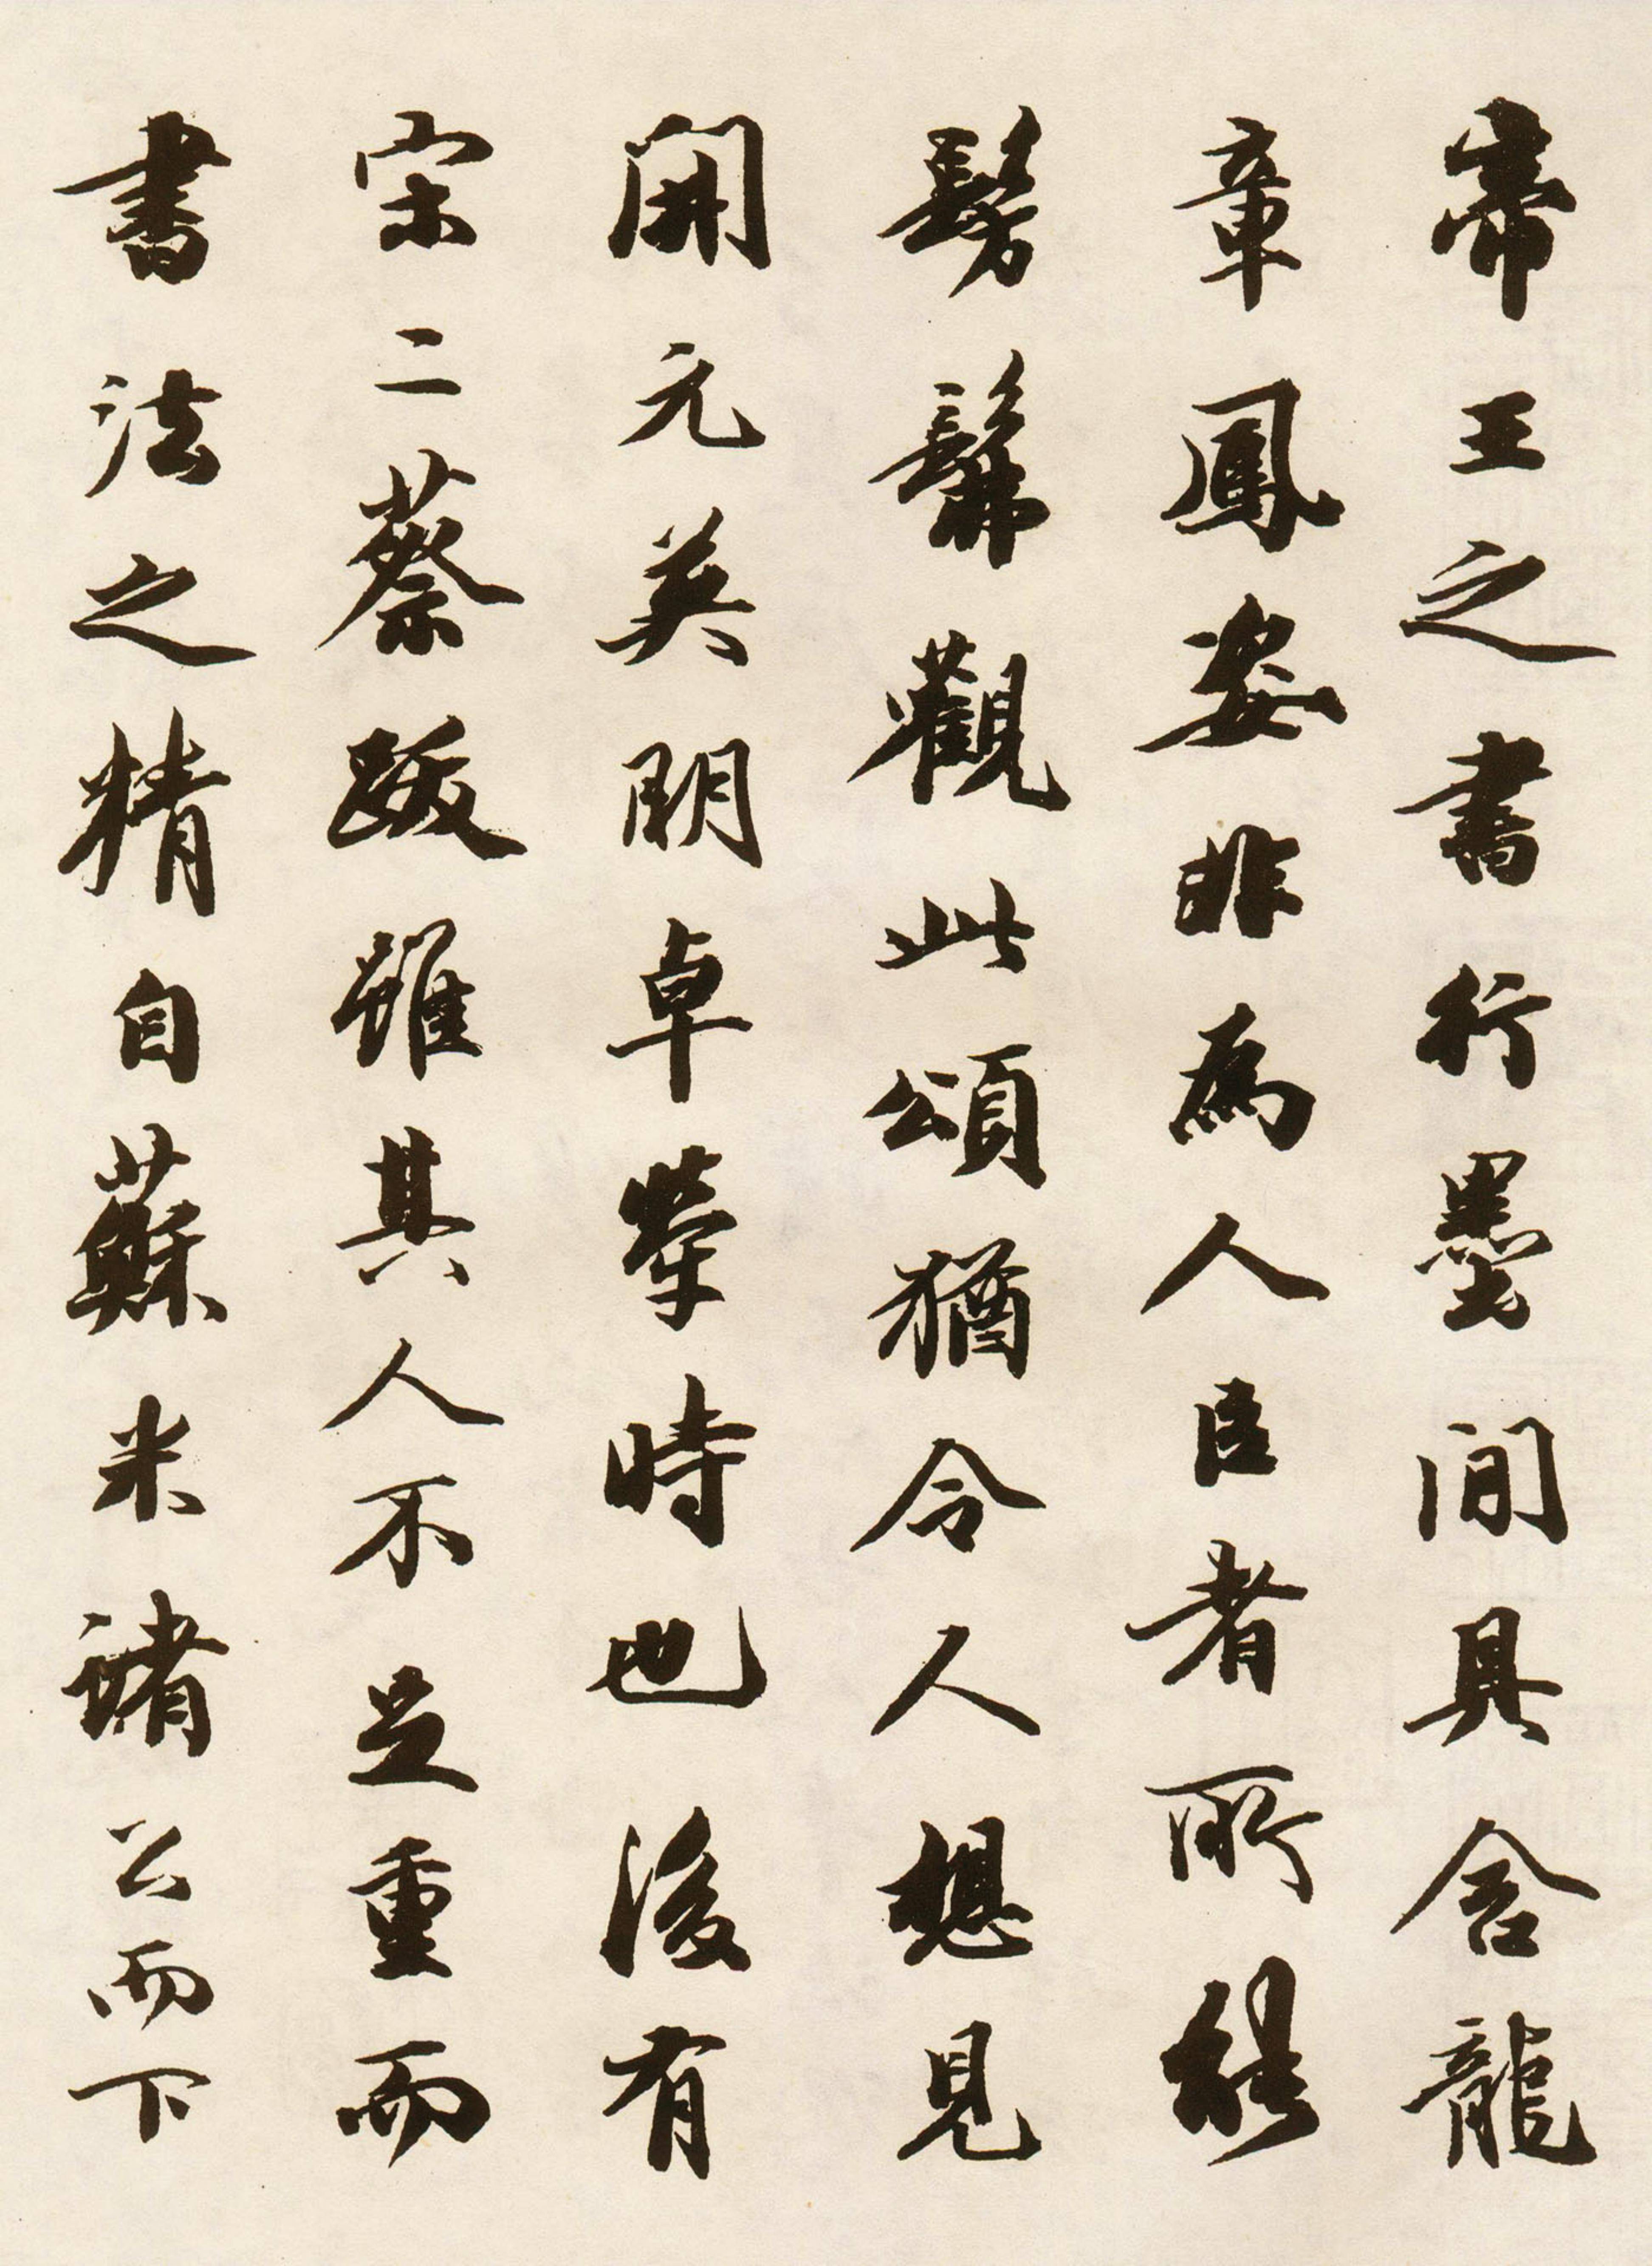 帝王之書行墨間具含龍
章鳳姿非爲人臣者所能
髣髴觀此頌猶令人想見
開元英明卓犖時也後有
宋二蔡跋雖其人不足重而
書法之精自蘇米諸公而下